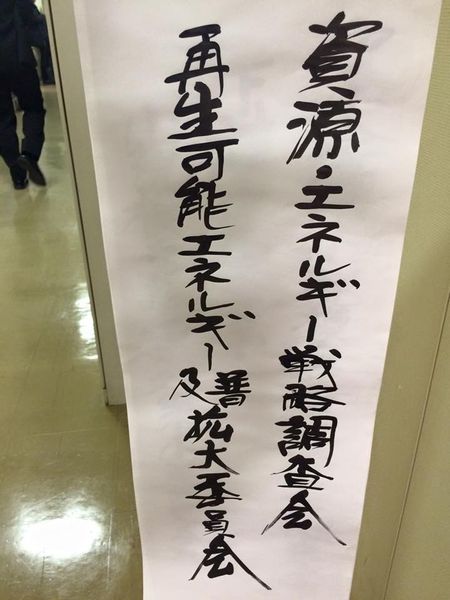 資源・エネルギー戦略調査会
再生可能エネルギー普及拡大委員会